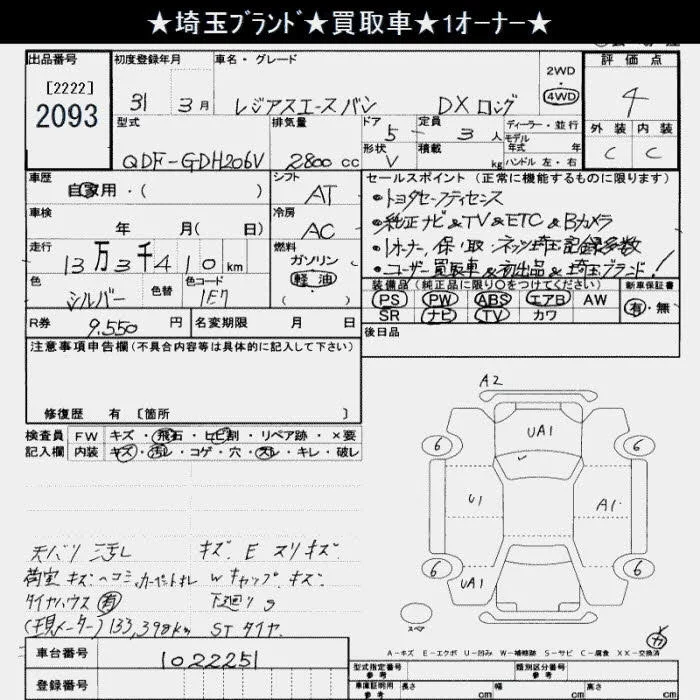 ★埼玉ﾌﾞﾗﾝﾄﾞ★買取車★1オーナー★
出品番号 初度登録年月 車名・グレード 2WD 評価点
[2222] 2093 31 3月 レジアスエースバン DXロング 4WD 4
型式 排気量 ドア 5 定員 3人 ディーラー・並行 外装 内装
QDF-GDH206V 2800cc 形状 V 積載 kg モデル年式 年 C C
ハンドル 左・右
車歴 自家用・( ) シフト AT セールスポイント (正常に機能するものに限ります)
・トヨタセーフティセンス
車検 年 月( 日) 冷房 AC ・純正ナビ&TV&ETC&Bカメラ
走行 13万3千410km 燃料 ガソリン 軽油 ( ) ・1オーナー、保・取・ネッツ埼玉記録多数
・ユーザー買取車&初出品&埼玉ブランド!
色 シルバー 色替 色コード 1E7 装備品(純正品に限り○をつけてください) 新車保証書
PS PW ABS エアB AW 有・無
SR ナビ TV カワ
R券 9,550円 名変期限 月 日 後日品
注意事項申告欄(不具合内容等は具体的に記入して下さい)
修復歴 有 〔箇所 〕
検査員 FW キズ・飛石・ヒビ割・リペア跡・×要
記入欄 内装 キズ・汚レ・コゲ・穴・スレ・キレ・破レ
A2
UA1
6 6
U1 A1
6 6
UA1
スペア
天バリ 汚レ キズ、E スリキズ
荷室 キズヘコミ,カーペットオレ Wキャップ キズ
タイヤハウス 有 下廻りS
(現メーター)133,398km STタイヤ
A-キズ E-エクボ U-凹み W-補修跡 S-サビ C-腐食 XX-交換済
車台番号 1022251
型式指定番号 参考 類別区分番号 参考
登録番号 車庫証明用 参考 長さ cm 幅 cm 高さ cm